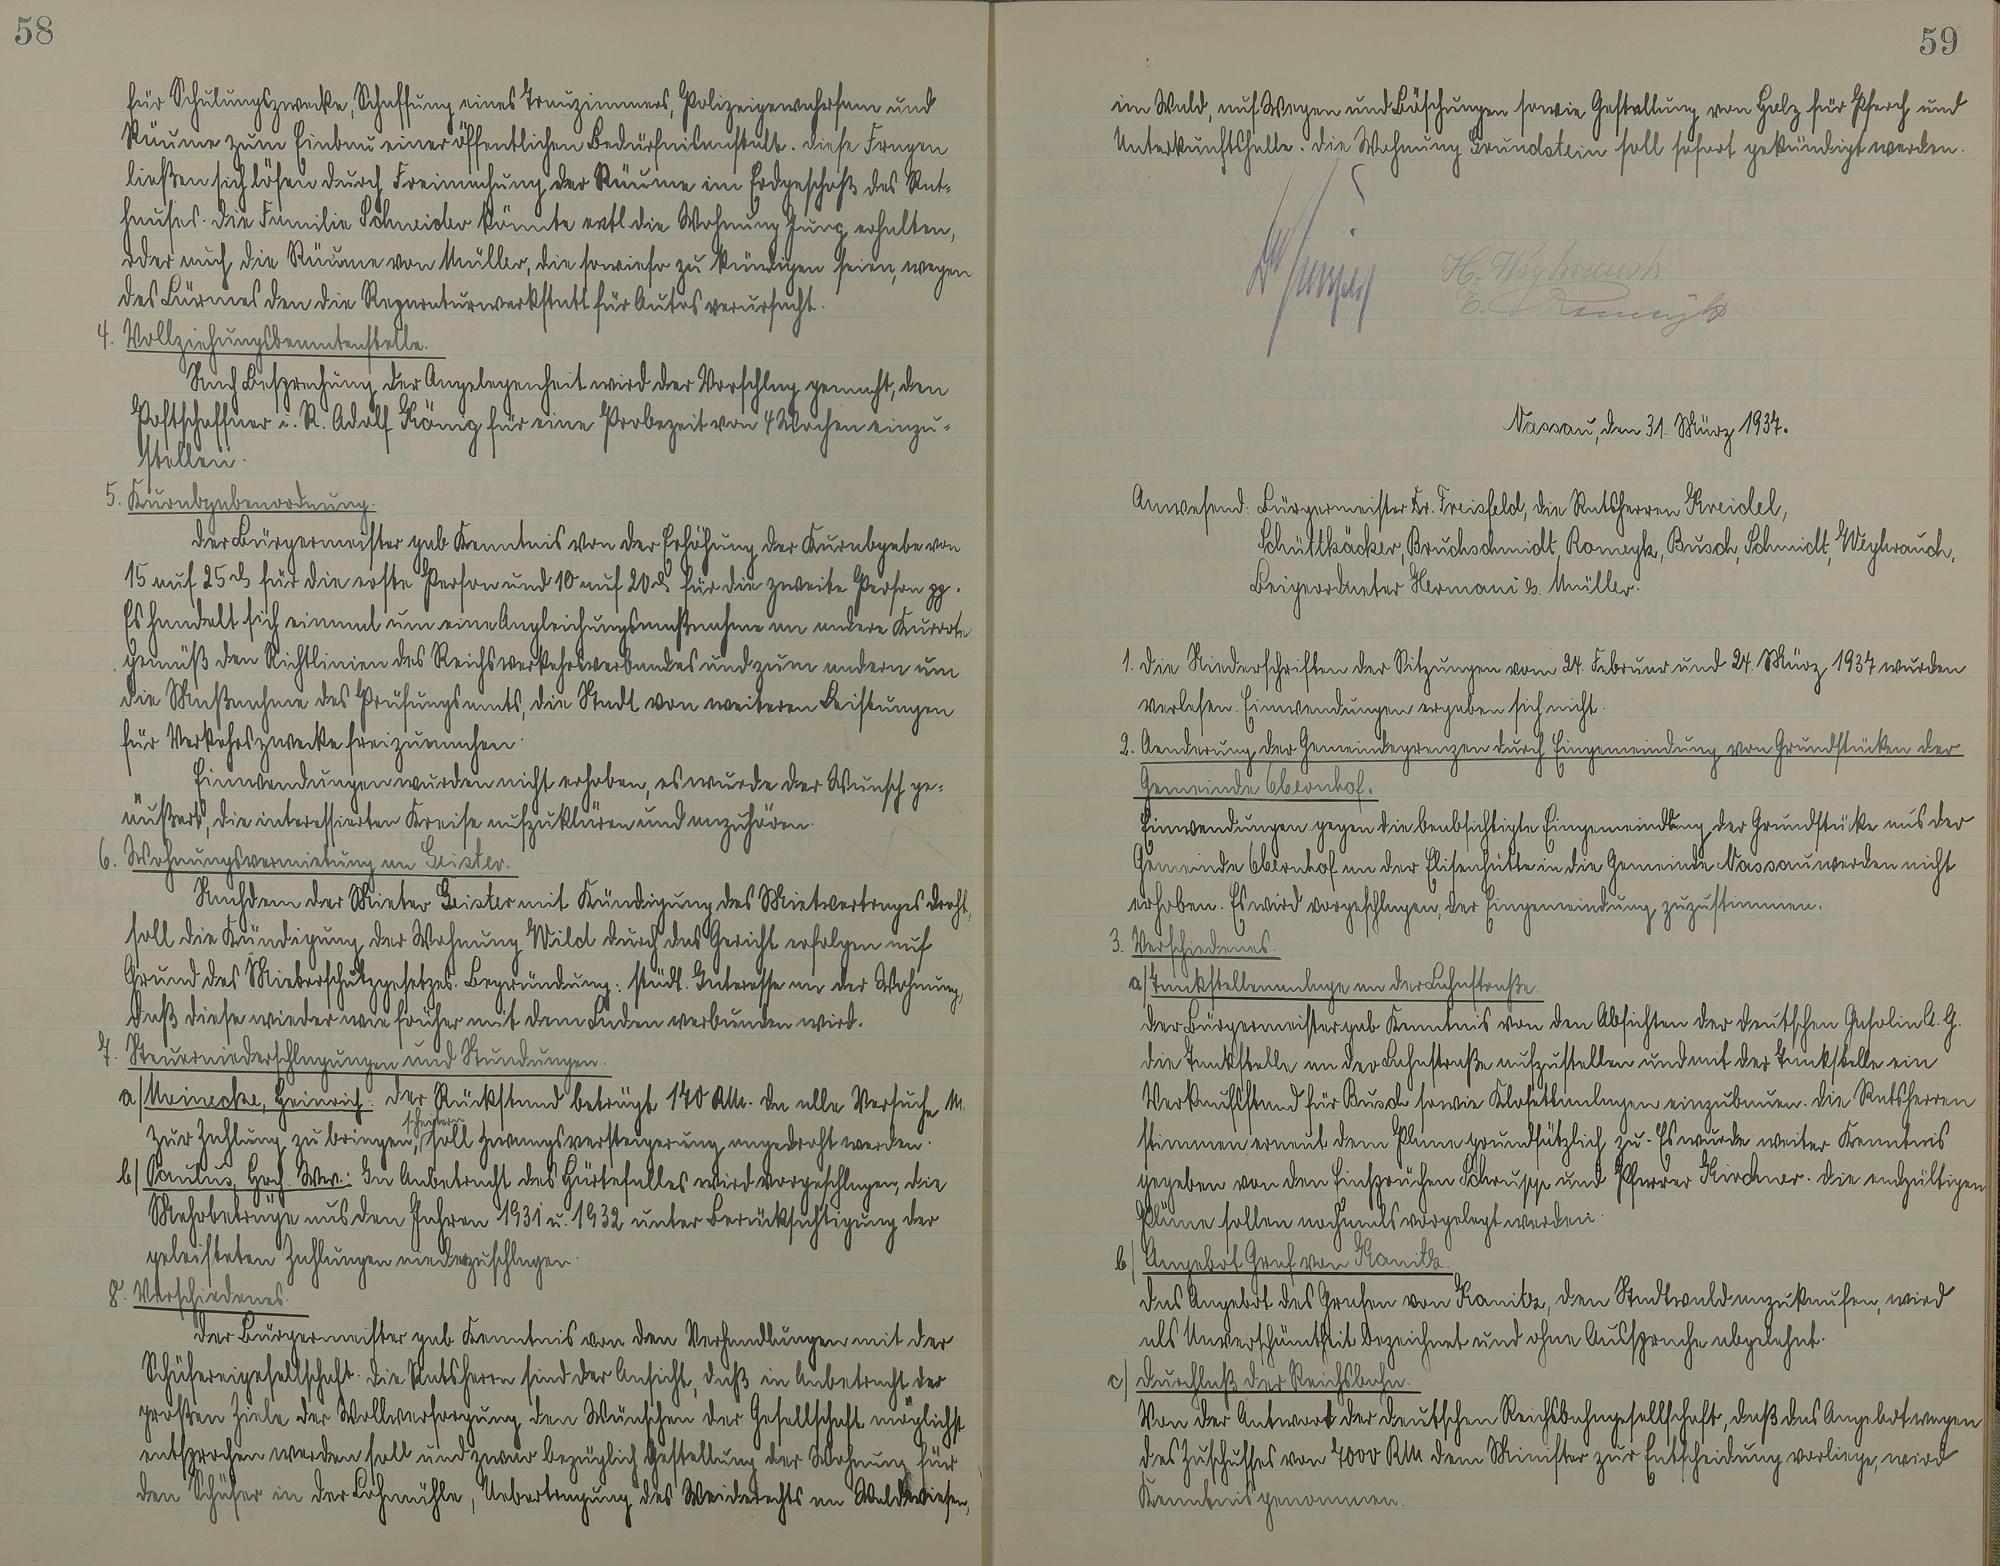 58
für Schulungszwecke, Schaffung eines Trauzimmers, Polizeigewahrsam und
Räume zum Einbau einer öffentlichen Bedürfnisanstalt. Diese Fragen
ließen sich lösen durch Freimachung der Räume im Erdgeschoß des Rat-
hauses. Die Familie Schneider könnte evtl. die Wohnung Jung erhalten,
oder auch die Räume von Müller, die sowieso zu kündigen seien, wegen
des Lärmes den die Reparaturwerkstatt für Autos verursacht.
4. Vollziehungsbeamtenstelle.
Nach Besprechung der Angelegenheit wird der Vorschlag gemacht, den
Postschaffner i. R. Adolf König für eine Probezeit von 4 Wochen einzu-
stellen.
5. Kurabgabenordnung.
Der Bürgermeister gab Kenntnis von der Erhöhung der Kurabgabe von
15 auf 25 ₰ für die erste Person und 10 auf 20 ₰ für die zweite Person pp.
Es handelt sich einmal um eine Angleichungsmaßnahme an andere Kurorte
gemäß den Richtlinien des Reichsverkehrsverbandes und zum andern um
die Maßnahme des Prüfungsamts, die Stadt von weiteren Leistungen
für Verkehrszwecke freizumachen.
Einwendungen wurden nicht erhoben, es wurde der Wunsch ge-
äußert, die interessierten Kreise aufzuklären und anzuhören.
6. Wohnungsvermietung an Geister.
Nachdem der Mieter Geister mit Kündigung des Mietvertrages droht,
soll die Kündigung der Wohnung Wild durch das Gericht erfolgen auf
Grund des Mieterschutzgesetzes. Begründung: städt. Interesse an der Wohnung,
daß diese wieder wie früher mit dem Laden verbunden wird.
7. Steuerniederschlagungen und Stundungen.
a/ Meinecke, Heinrich: Der Rückstand beträgt 170 RM. Da alle Versuche M.
zur Zahlung zu bringen, scheitern, soll Zwangsversteigerung angedroht werden.
b/ Paulus, Hch. Ww.: In Anbetracht des Härtefalles wird vorgeschlagen, die
Mehrbeträge aus den Jahren 1931 u. 1932 unter Berücksichtigung der
geleisteten Zahlungen niederzuschlagen.
8. Verschiedenes.
Der Bürgermeister gab Kenntnis von den Verhandlungen mit der
Schäfereigesellschaft. Die Ratsherrn sind der Ansicht, daß in Anbetracht der
großen Ziele der Wollversorgung den Wünschen der Gesellschaft möglichst
entsprochen werden soll und zwar bezüglich Gestellung der Wohnung für
den Schäfer in der Lohmühle, Uebertragung des Weiderechts an Waldwiesen,
59
im Wald, auf Wegen und Böschungen sowie Gestellung von Holz für Pferch und
Unterkunftshalle. Die Wohnung Grundstein soll sofort gekündigt werden.
H. Weyhrauch
E. Romeyk
Nassau, den 31. März 1937.
Anwesend: Bürgermeister Dr. Freisfeld, die Ratsherren Kreidel,
Schüttkäcker, Bruchschmidt, Romeyk, Busch, Schmidt, Weyhrauch,
Beigeordneter Hermani & Müller.
1. Die Niederschriften der Sitzungen vom 24. Februar und 24. März 1937 wurden
verlesen. Einwendungen ergaben sich nicht.
2. Aenderung der Gemeindegrenzen durch Eingemeindung von Grundstücken der
Gemeinde Obernhof.
Einwendungen gegen die beabsichtigte Eingemeindung der Grundstücke aus der
Gemeinde Obernhof an der Elisenhütte in die Gemeinde Nassau werden nicht
erhoben. Es wird vorgeschlagen, der Eingemeindung zuzustimmen.
3. Verschiedenes.
a/ Tankstellenanlage an der Lahnstraße.
Der Bürgermeister gab Kenntnis von den Absichten der Deutschen Gasolin A.G.
die Tankstelle an der Lahnstraße aufzustellen und mit der Tankstelle ein
Verkaufsstand für Busch sowie Klosettanlagen einzubauen. Die Ratsherren
stimmen erneut dem Plane grundsätzlich zu. Es wurde weiter Kenntnis
gegeben von den Einsprüchen Schrupp und Pfarrer Kirchner. Die endgültigen
Pläne sollen nochmals vorgelegt werden.
b/ Angebot Graf von Kanitz.
Das Angebot des Grafen von Kanitz, den Stadtwald anzukaufen, wird
als Unverschämtheit bezeichnet und ohne Aussprache abgelehnt.
c/ Durchlaß der Reichsbahn.
Von der Antwort der Deutschen Reichsbahngesellschaft, daß das Angebot wegen
des Zuschusses von 7000 RM dem Minister zur Entscheidung vorliege, wird
Kenntnis genommen.